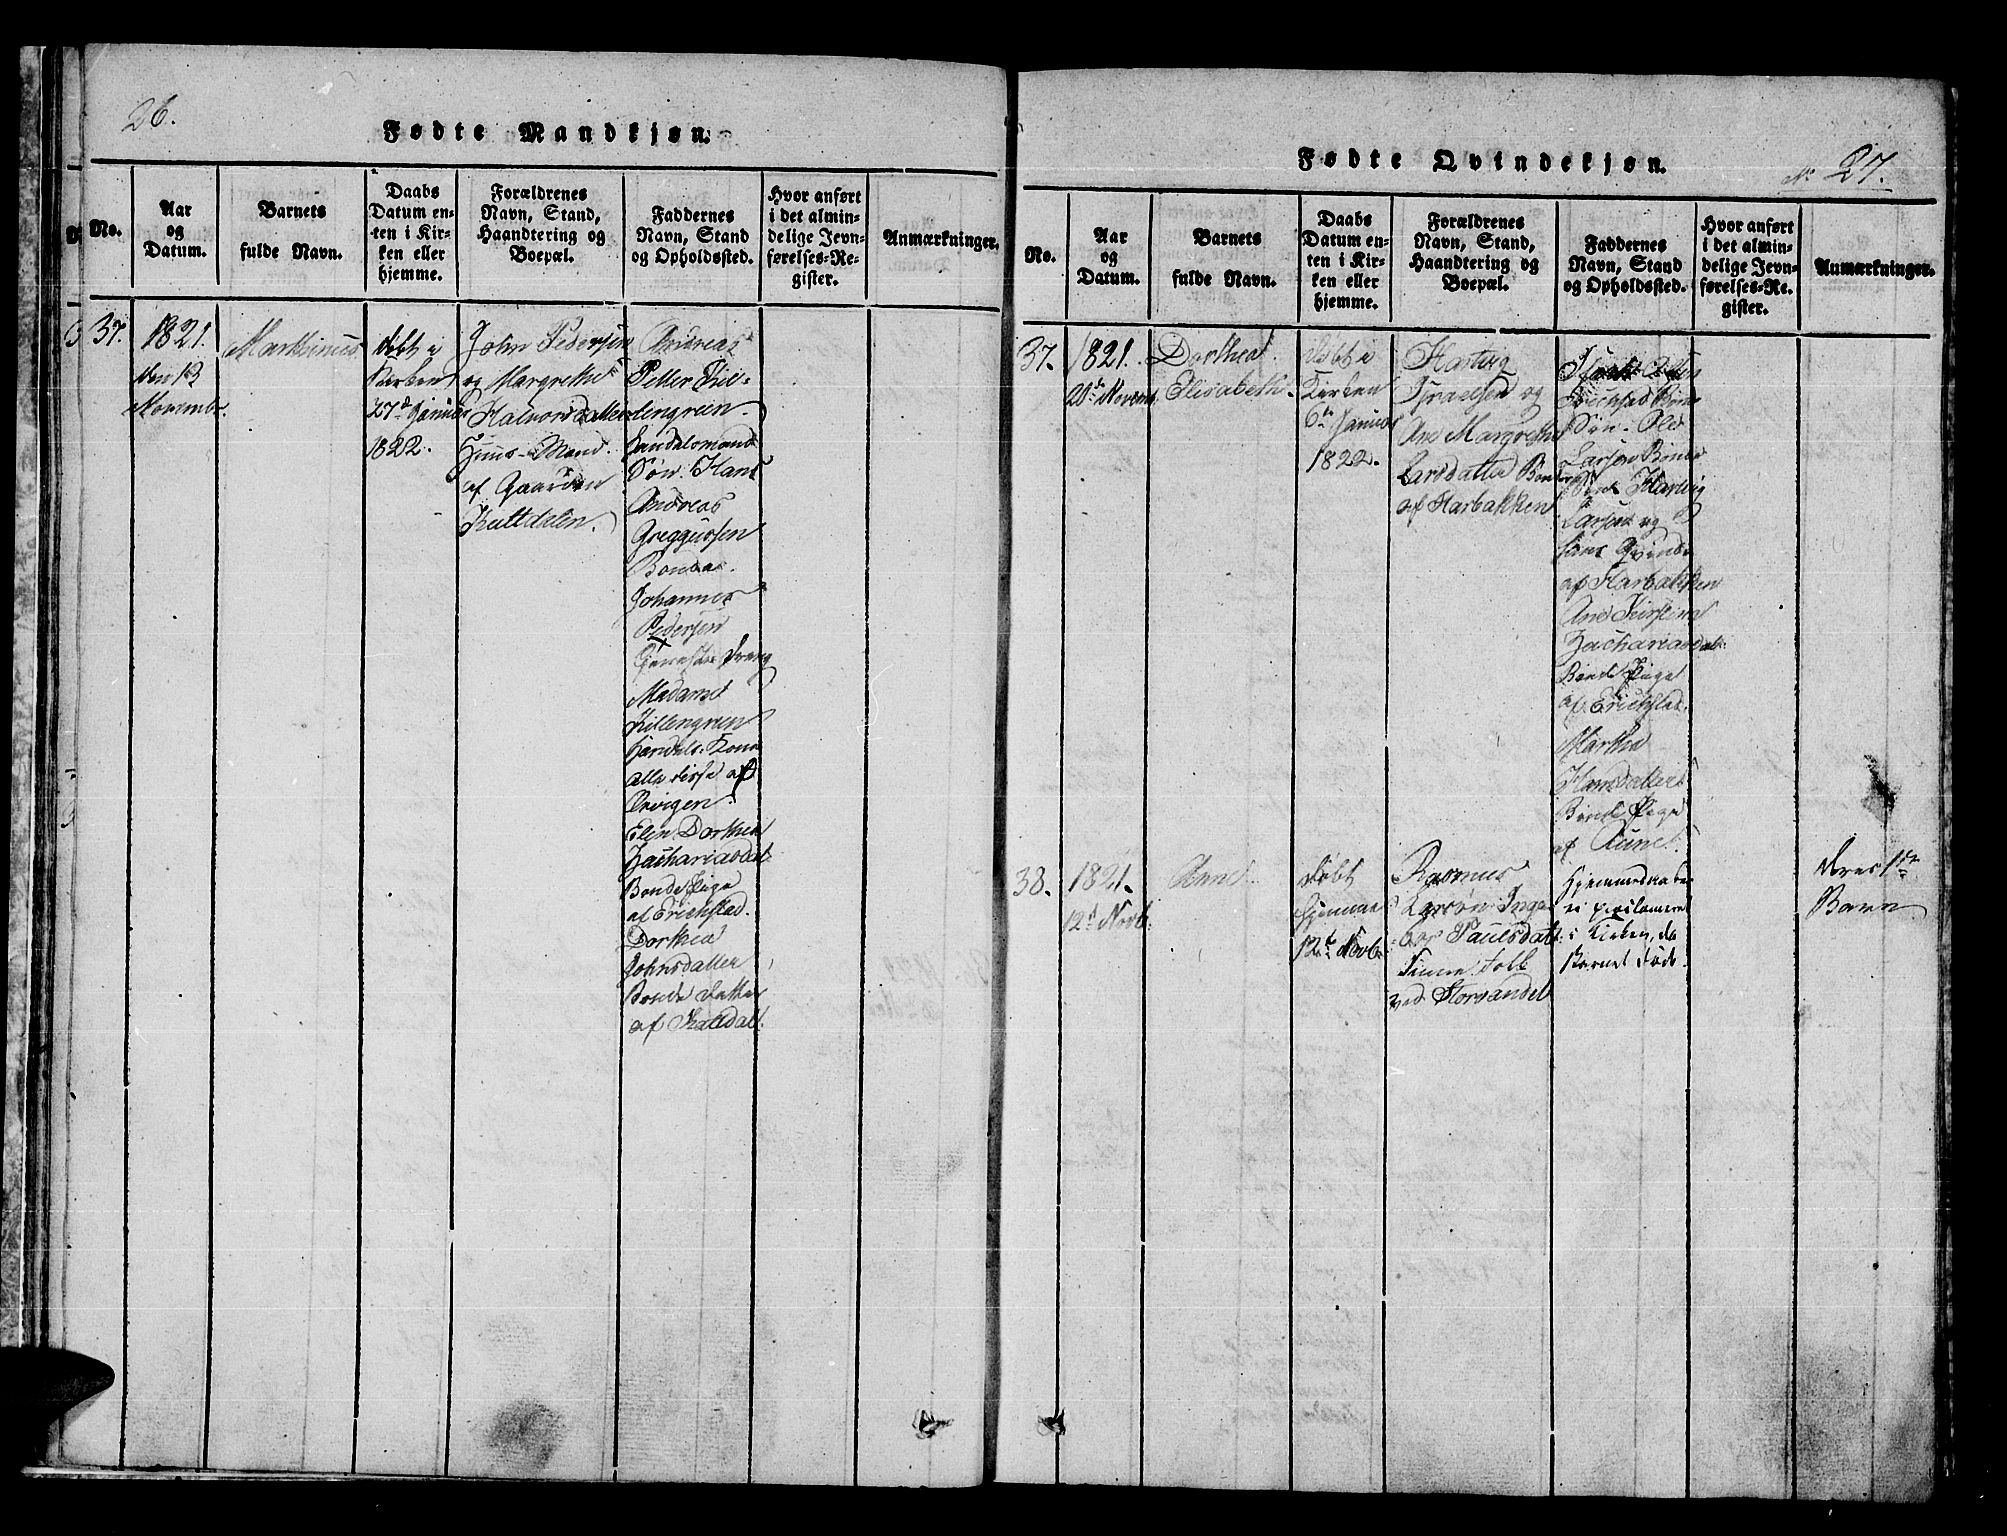 26.
Fødte Mandkjøn.
No.
Aar
og
Datum.
Barnets
fulde Navn.
Daabs
Datum en-
ten i Kir-
ken eller
hjemme.
Forældrenes
Navn, Stand,
Haandtering og
Boepæl.
Faddernes
Navn, Stand
og Opholdssted.
Hvor anført
i det almin-
delige Jevn-
førelses-Re-
gister.
Anmærkninger.
37.
1821.
den 13
Novembr.
Marthinus
døbt i
Kirken
27d Januar
1822.
John Pedersen
og Margrethe
Halvorsdatter
Huus-Mand
af Gaarden
Kaltdalen.
Andreas
Petter Kil-
lengreen
Handelsmands
Søn. Hans
Andreas
Greggussen
Bonde.
Johannes
Pedersen
Tjeneste Dreng
Madame
Killengreen
Handels-Kone
alle disse af
Elen Dorthea
Zachariasdat:
Bonde Pige
af Erichstad.
Dorthea
Johnsdatter
Bonde Datter
af Kaltdal.
Fødte Qvindekjøn.
No 27.
No.
Aar
og
Datum.
Barnets
fulde Navn.
Daabs
Datum en-
ten i Kir-
ken eller
hjemme.
Forældrenes
Navn, Stand,
Haandtering og
Boepæl.
Faddernes
Navn, Stand
og Opholdssted.
Hvor anført
i det almin-
delige Jevn-
førelses-Re-
gister.
Anmærkninger.
37.
1821.
20de Novemb
Dorthea
Elisabeth.
Døbt i
Kirken
6te Januar
1822.
Hartvig
Israelsen og
Ane Margrethe
Larsdatter Bonde
af Harbakken
Erichstad Bonde
Søn. Ole
Larsen Bonde
Hartvig
Larsen og
hans Qvinde
af Harbakken
Ane Kirstine
Zachariasdat:
Bonde Pige
af Erichstad.
Martha
Hansdatter
Bonde Pige
af
38.
1821.
12te Novb:
Ane
døbt
hjemme
12te Novb:
Rasmus
Larsøn Inge-
bor Paulsdatt:
Finne Folk
ved Storsandet
Hjemmedøbt
ei
i Kirken, da
Barnet døde.
deres 1ste
Barn